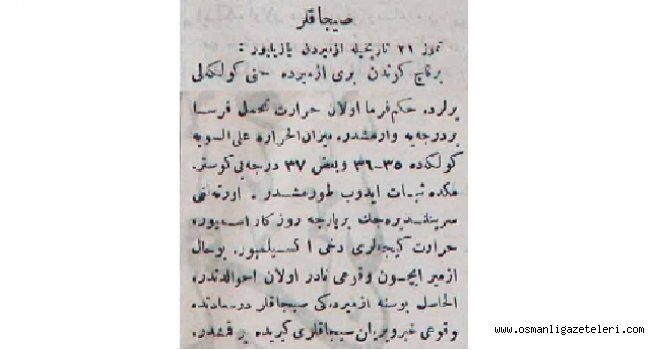 صیجاقلر
تموز ٢١ تاریخیله ازمیردن یازیلیور :
برقاچ کوندن بری ازمیرده حتی کولکه‌لی
یرلرده حکمفرما اولان حرارت تحمل فرسا
بر درجه‌یه وارمشدر. میزان الحراره علی السویه
کولکده ٣٥-٣٦ و بعض ٣٧ درجه‌یی کوستر-
مکده ثبات ایدوب طورمشدر. اورته‌لغی
سرینلندیره‌جك بر پارچه روزکار اسمیور،
حرارت کیجه‌لری دخی اکسیلمیور. بو حال
ازمیر ایچون وقوعی نادر اولان احوالدندر.
الحاصل بو سنه ازمیرده‌کی صیجاقلر درسعادتده
وقوعی خبر ویریلن صیجاقلری کریده براقمشدر.
www.osmanligazeteleri.com